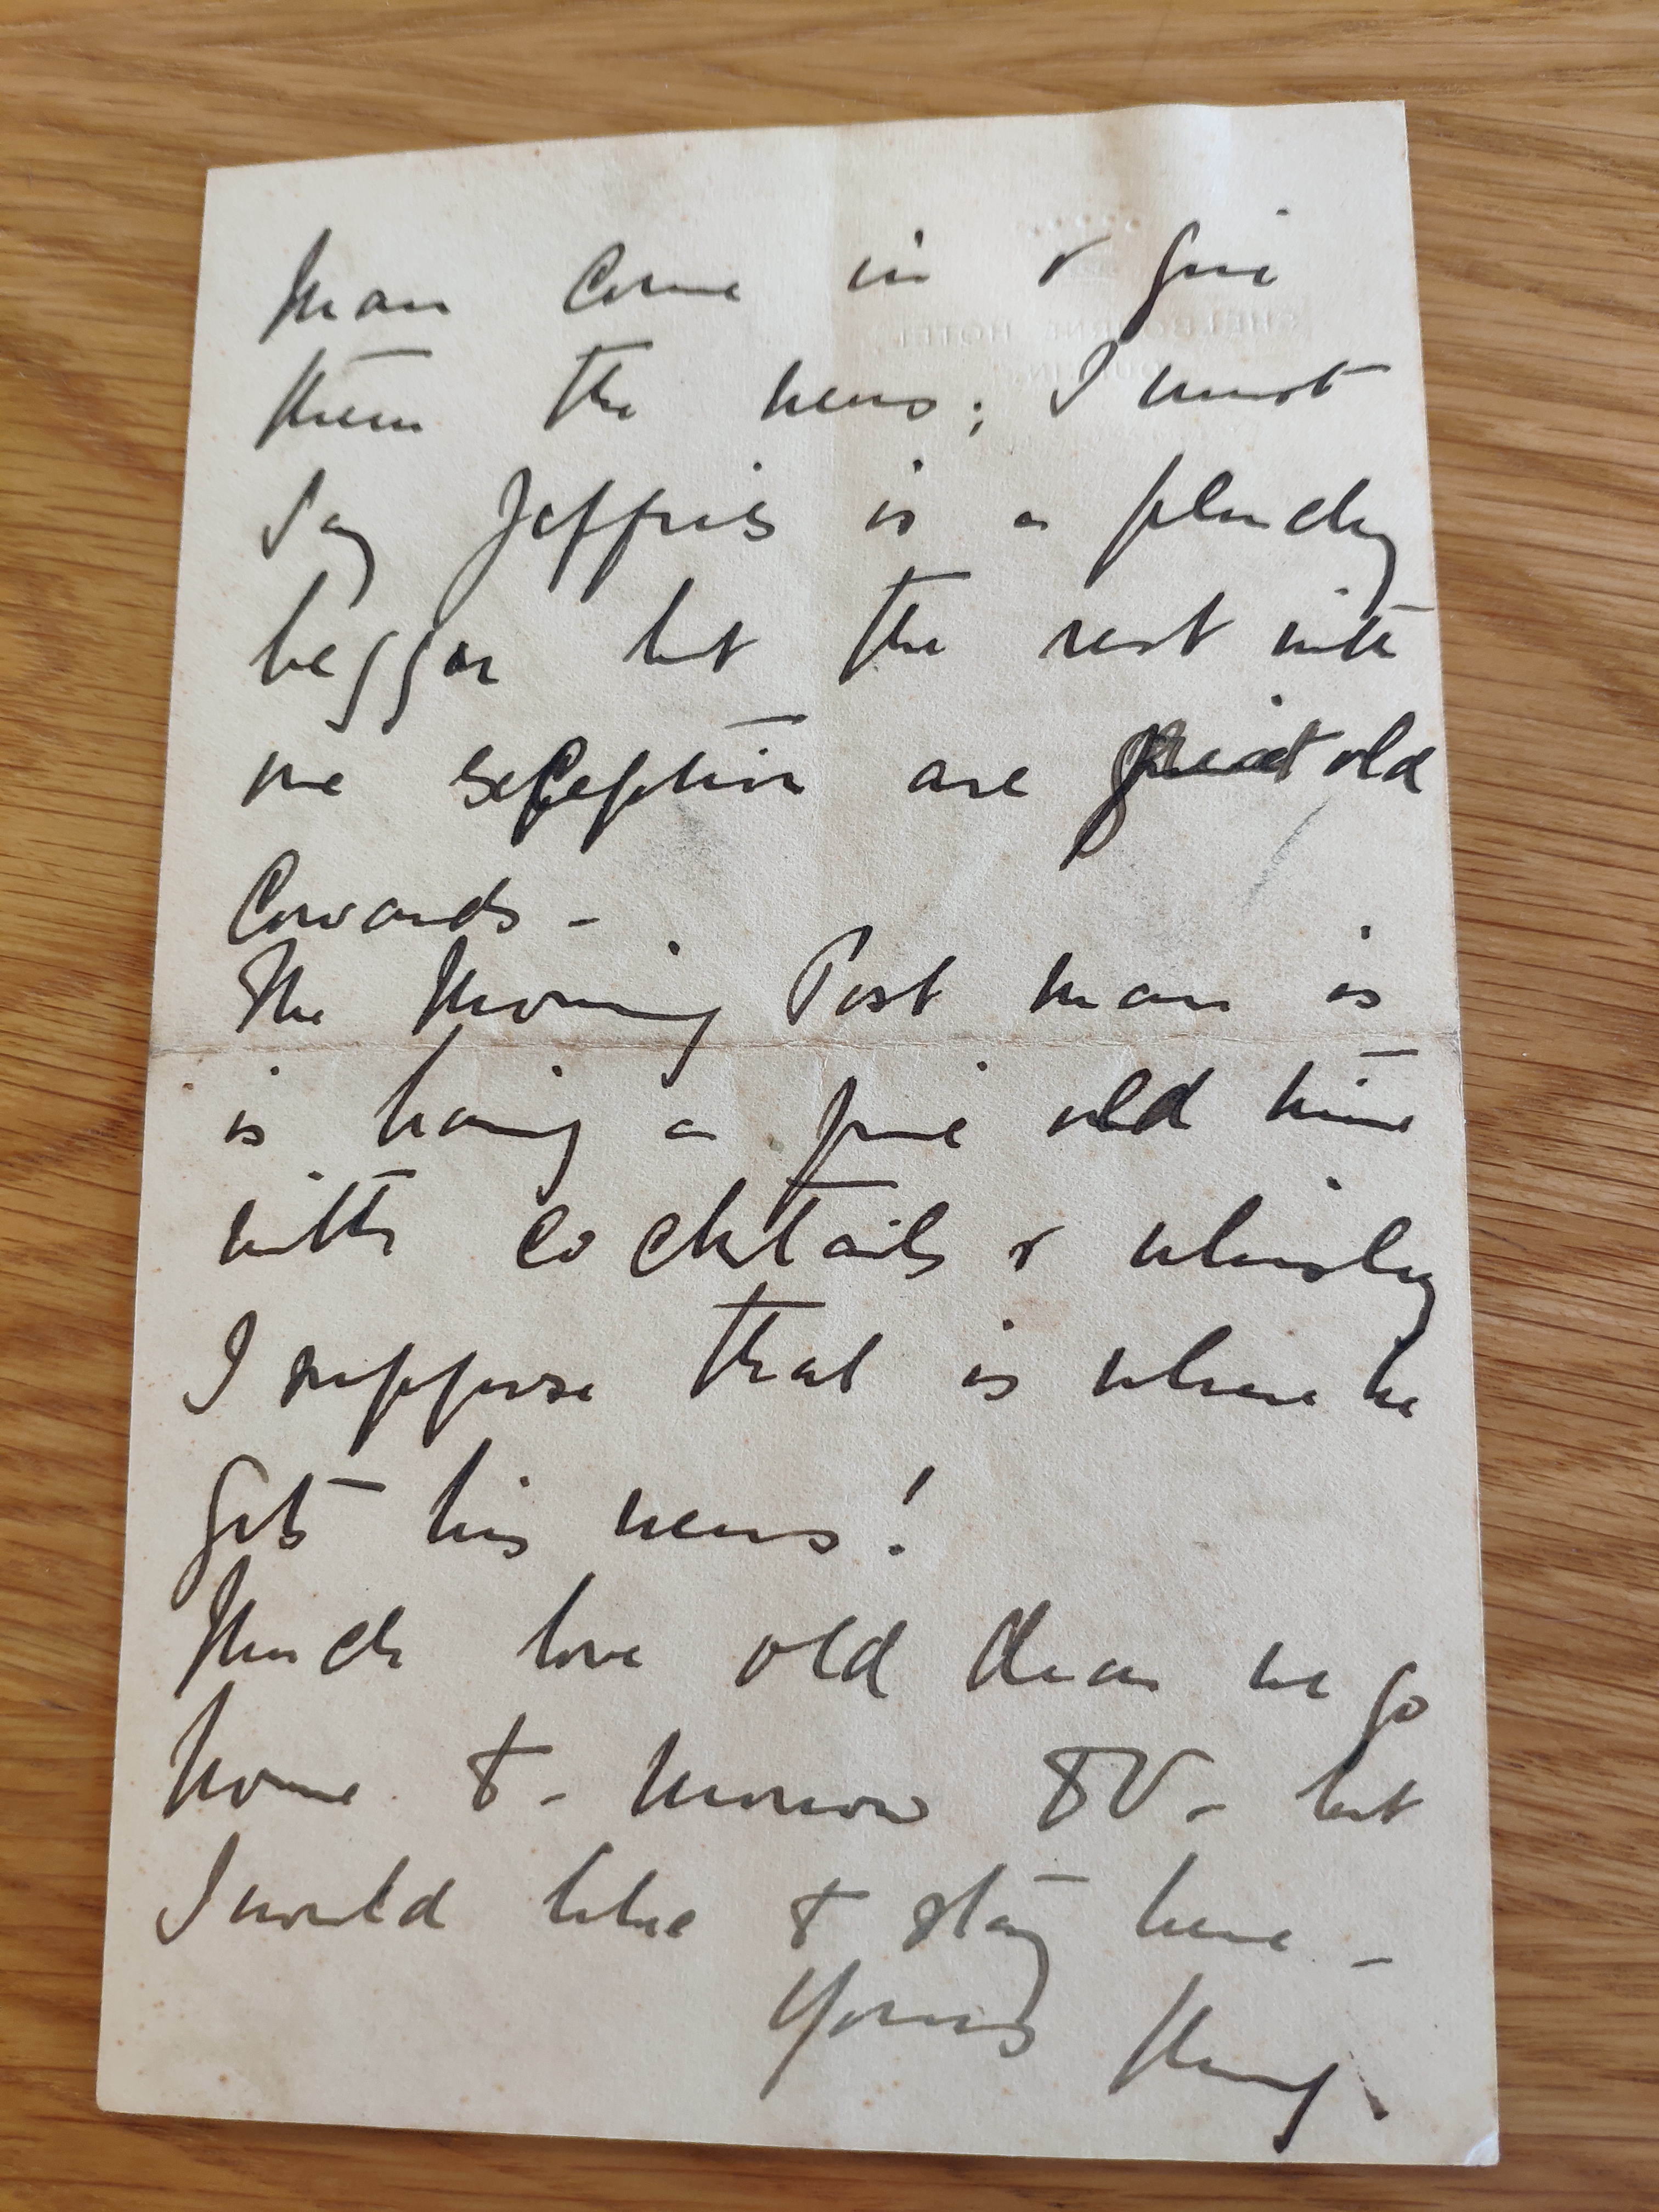 man come in & give
them the news; I must
say Jeffries is a plucky
beggar but the rest with
one exception are great old
Cowards -
The Morning Post man is
is having a fine old time
with cocktails & whisky
I suppose that is where he
gets his news!
Much love old dear we go
home to-morrow DV - but
I would like to stay here -
Yours
SHELBOURNE HOTEL
DUBLIN.